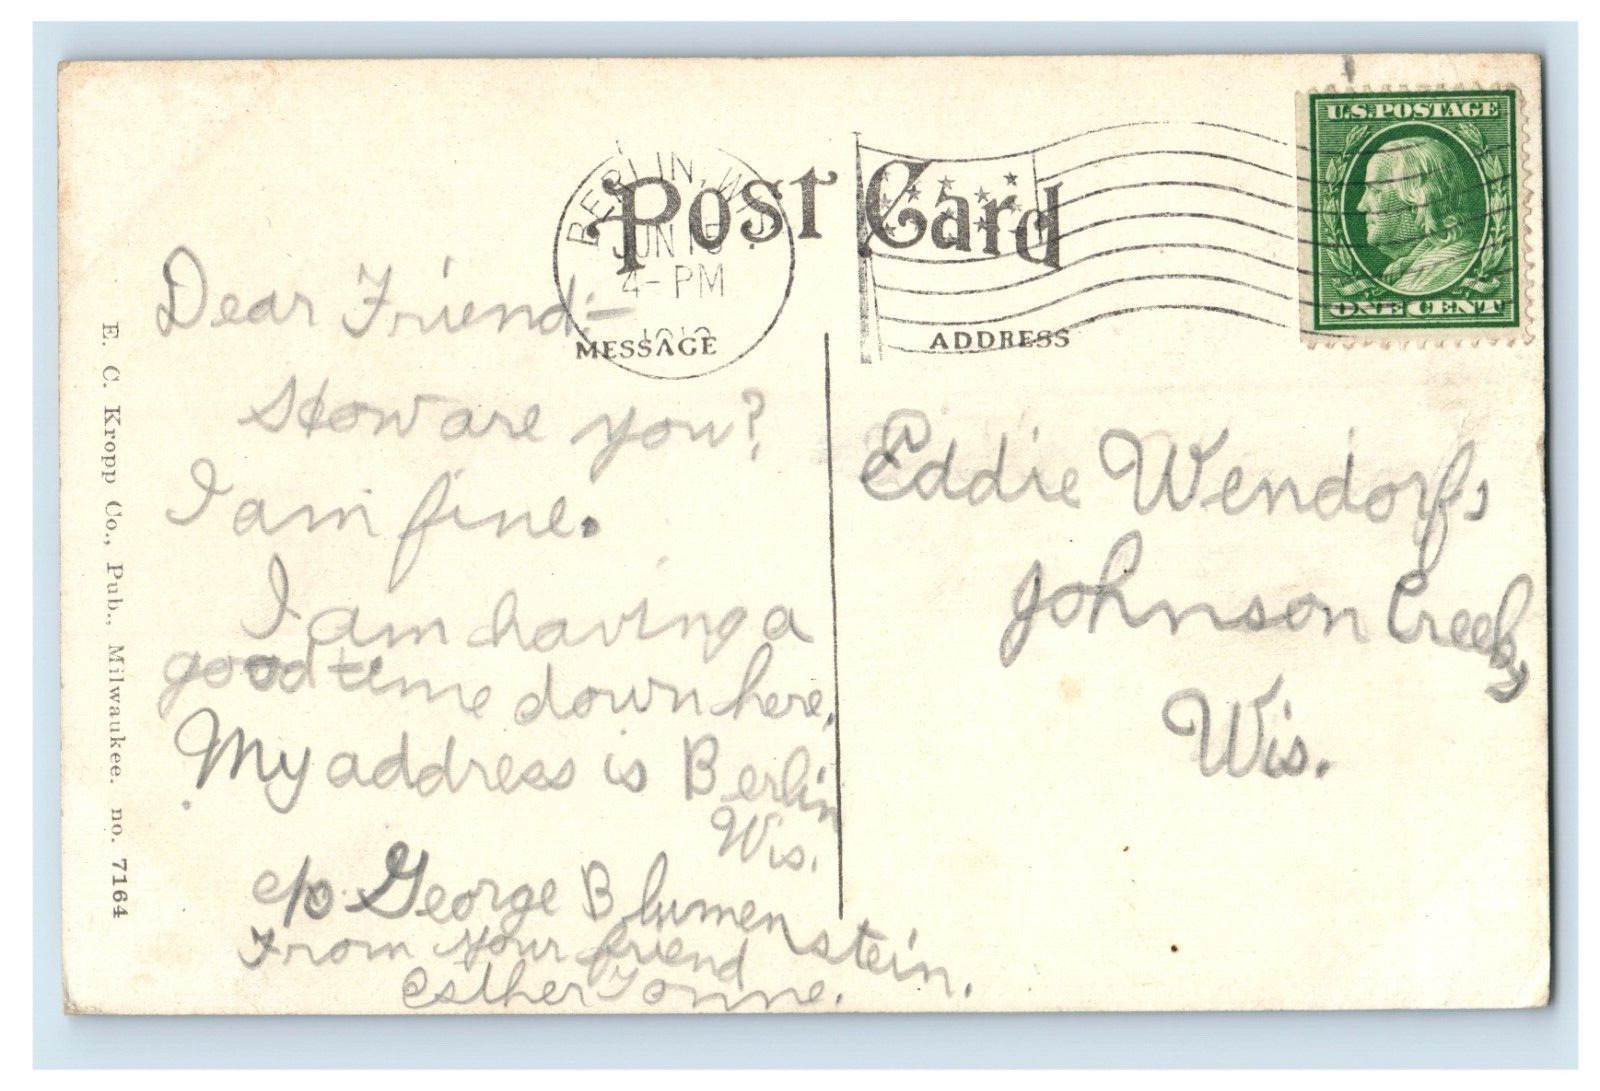 Post Card
BERLIN, WIS.
JUN 15
4-PM
U.S. POSTAGE
ONE CENT
MESSAGE
ADDRESS
Dear Friend:-
How are you?
I am fine.
I am having a
good time down here.
My address is Berlin
Wis.
c/o George Blumenstein.
From your friend
Esther Tonne.
Eddie Wendorf,
Johnson Creek,
Wis.
E. C. Kropp Co., Pub., Milwaukee. no. 7164